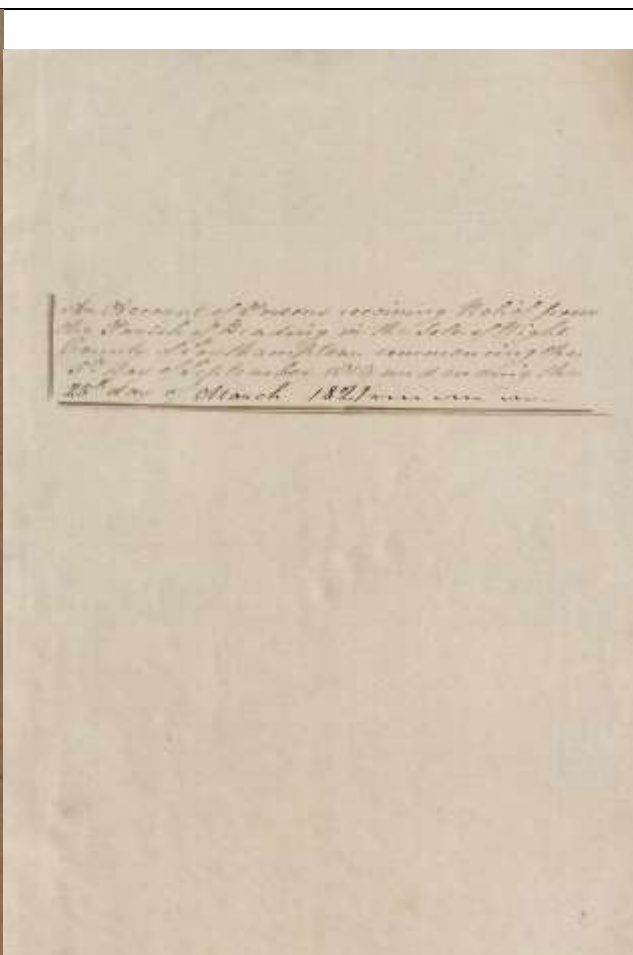 An Account of Persons receiving Relief from
the Parish of Brading in the Isle of Wight
County of Southampton commencing the
5th day of September and ending the
25th day of March 1821